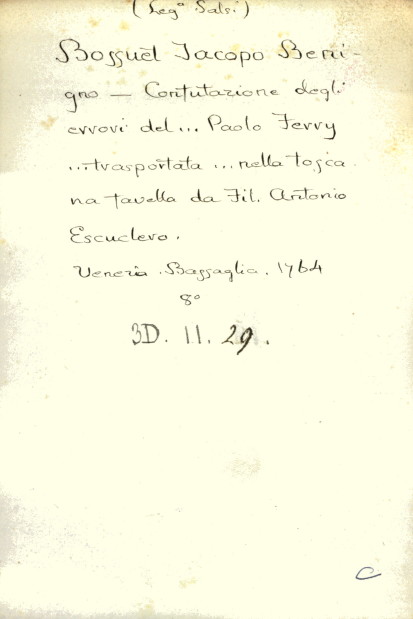 (Leg° Salsi)
Bossuèt Jacopo Beni-
gno — Confutazione degli
errori del... Paolo Ferry
...trasportata ...nella tosca
na favella da Fil. Antonio
Escuclero.
Venezia. Bassaglia. 1764
8°
3D. 11. 29.
C